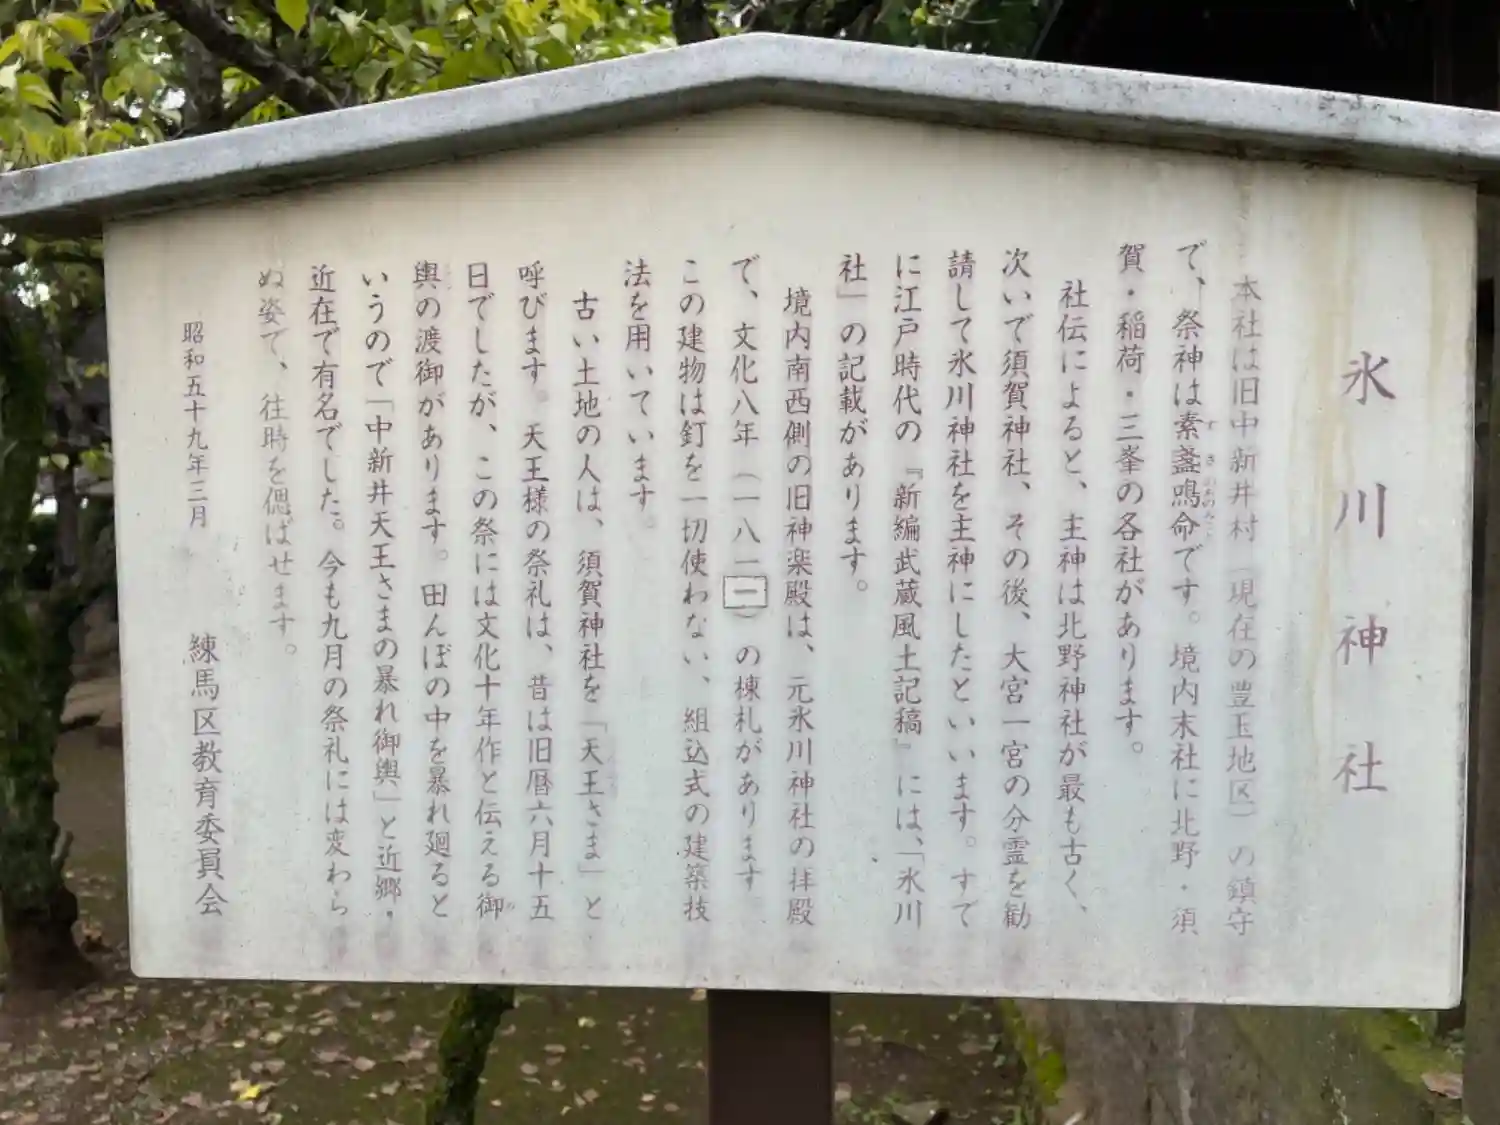 氷川神社
本社は旧中新井村（現在の豊玉地区）の鎮守
で、祭神は素盞鳴命です。境内末社に北野・須
賀・稲荷・三峯の各社があります。
社伝によると、主神は北野神社が最も古く、
次いで須賀神社、その後、大宮一宮の分霊を勧
請して氷川神社を主神にしたといいます。すで
に江戸時代の『新編武蔵風土記稿』には、「氷川
社」の記載があります。
境内南西側の旧神楽殿は、元氷川神社の拝殿
で、文化八年（一八一一）の棟札があります
この建物は釘を一切使わない、組込式の建築技
法を用いています。
古い土地の人は、須賀神社を「天王さま」と
呼びます。天王様の祭礼は、昔は旧暦六月十五
日でしたが、この祭には文化十年作と伝える御
輿の渡御があります。田んぼの中を暴れ廻ると
いうので「中新井天王さまの暴れ御輿」と近郷・
近在で有名でした。今も九月の祭礼には変わら
ぬ姿で、往時を偲ばせます。
昭和五十九年三月　練馬区教育委員会